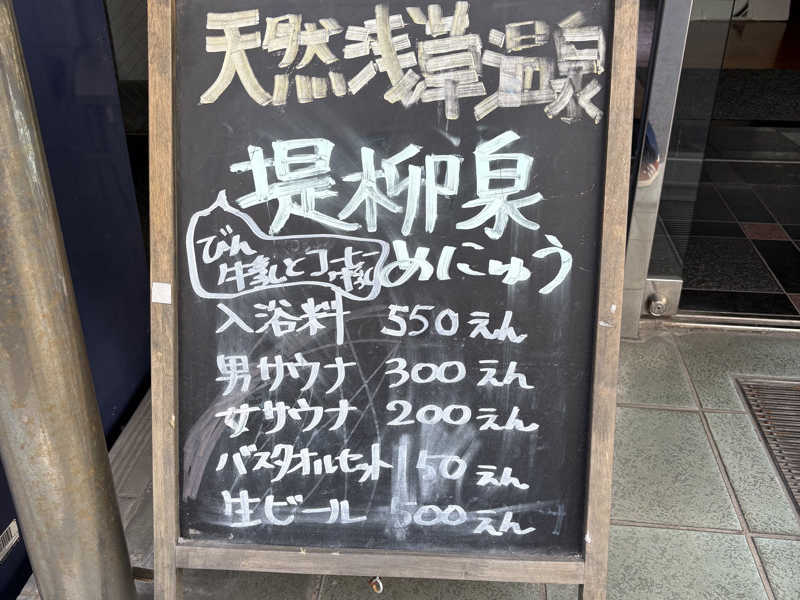 天然浅草温泉
堤柳泉
びん
牛乳とコーヒー牛乳
めにゅう
入浴料 550えん
男サウナ 300えん
女サウナ 200えん
バスタオルセット 150えん
生ビール 500えん